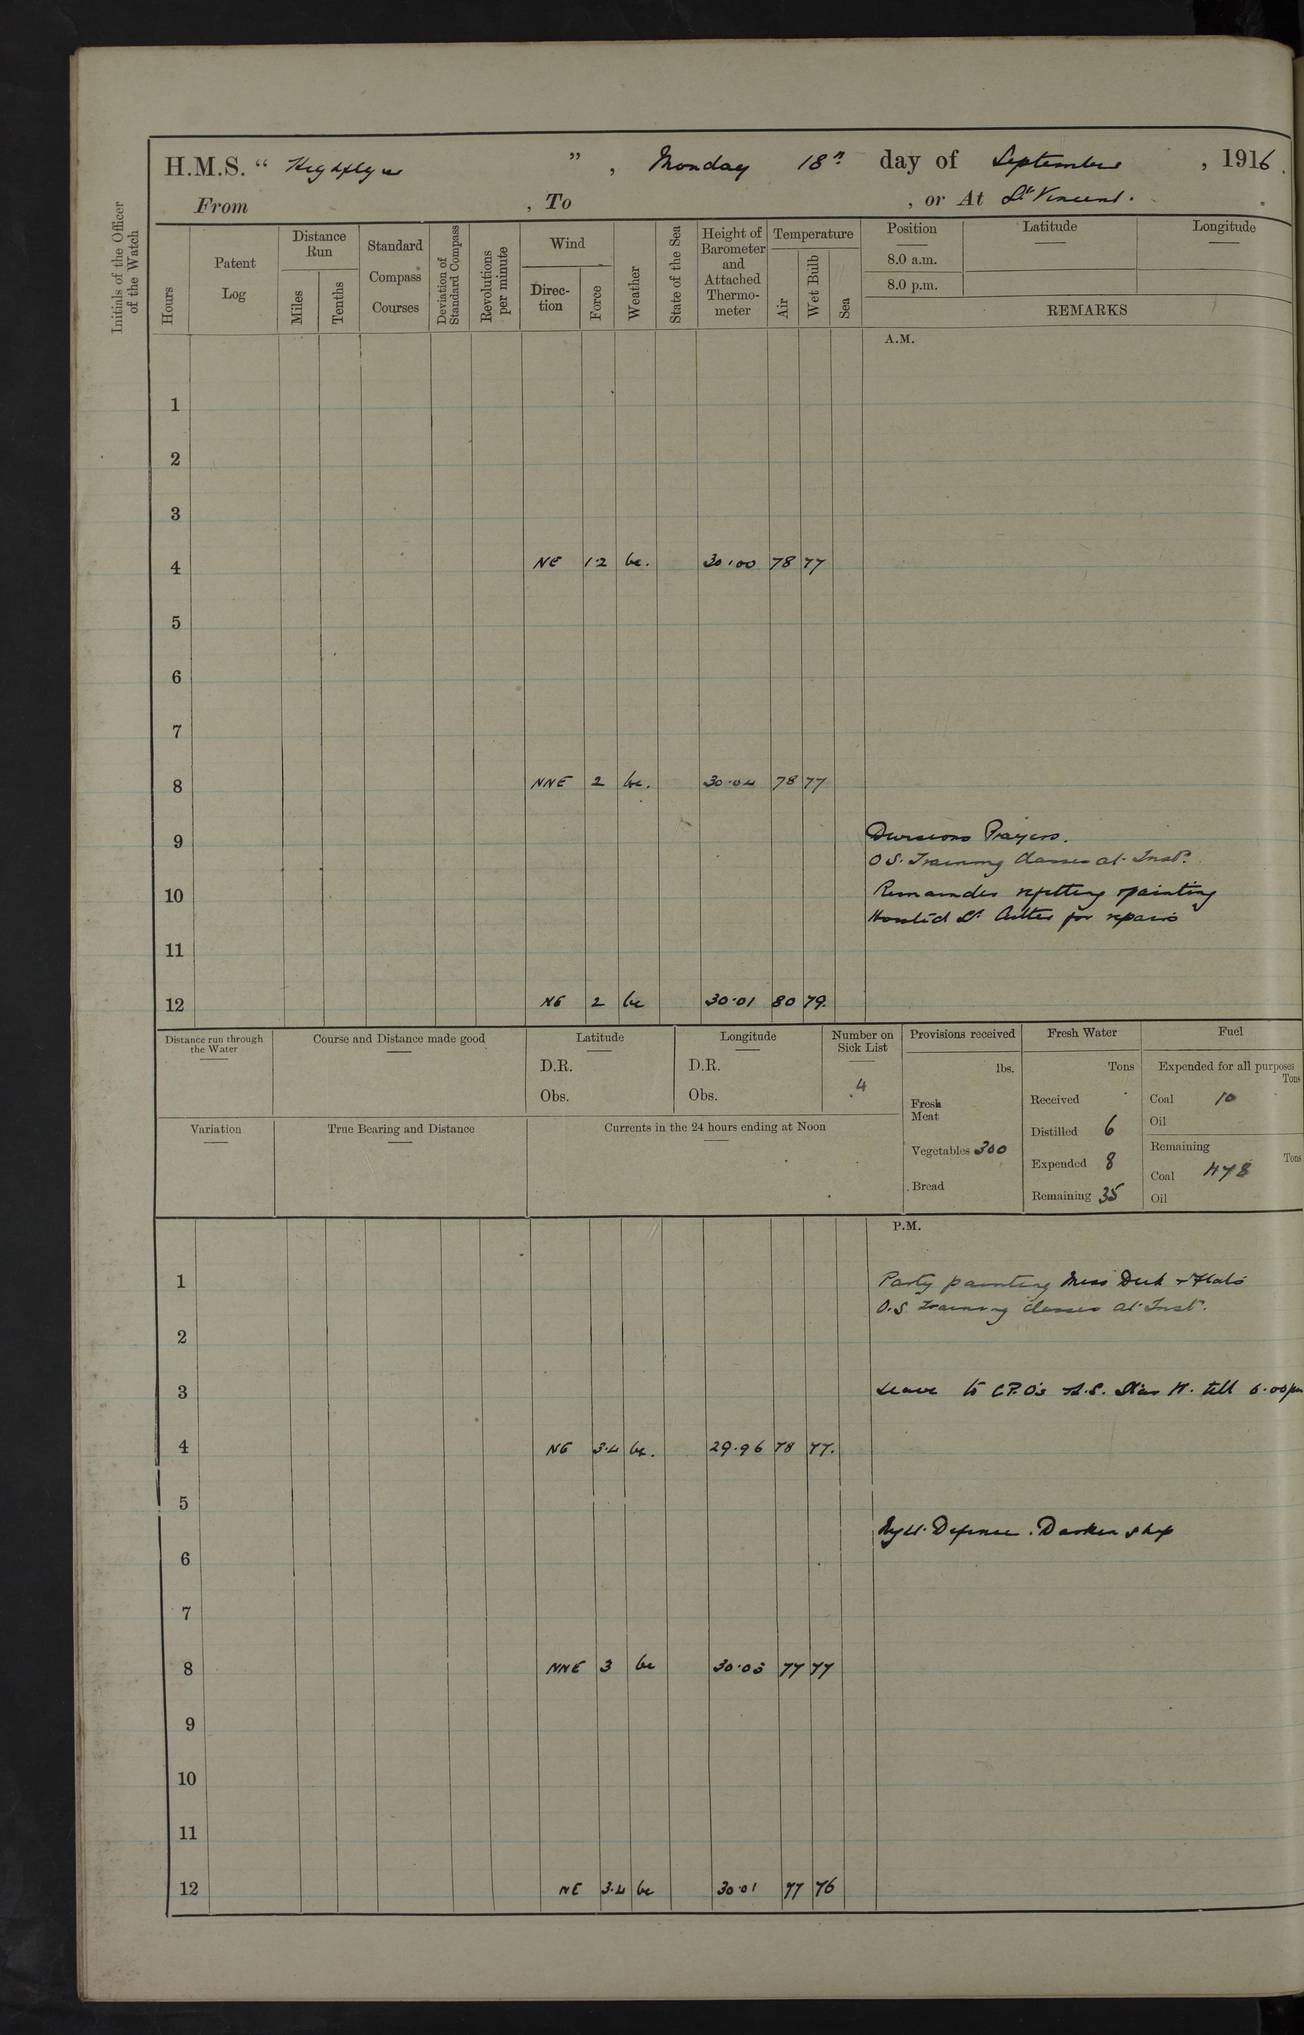 H.M.S. “ Highflyer ” , Monday 18th day of September , 1916.
From , To , or At St Vincent.
Initials of the Officer of the Watch
Hours
Patent Log
Distance Run
Miles
Tenths
Standard Compass Courses
Deviation of Standard Compass
Revolutions per minute
Wind
Direction
Force
Weather
State of the Sea
Height of Barometer and Attached Thermometer
Temperature
Air
Wet Bulb
Sea
Position
Latitude
Longitude
8.0 a.m.
8.0 p.m.
REMARKS
A.M.
1
2
3
4 NE 1·2 bc. 30·00 78 77
5
6
7
8 NNE 2 bc. 30·04 78 77
9 Divisions Prayers.
O.S. Training Classes at Inst.
10 Remainder refitting & painting
Hoisted Lt Cutter for repairs
11
12 NE 2 bc 30·01 80 79.
Distance run through the Water
Course and Distance made good
Latitude
D.R.
Obs.
Longitude
D.R.
Obs.
Number on Sick List
4
Provisions received
lbs.
Fresh Meat
Vegetables 300
Bread
Fresh Water
Tons
Received
Distilled 6
Expended 8
Remaining 35
Fuel
Expended for all purposes
Tons
Coal 10
Oil
Remaining
Tons
Coal 478
Oil
Variation
True Bearing and Distance
Currents in the 24 hours ending at Noon
P.M.
1 Party painting Mess Deck & Flats
O.S. Training Classes at Inst.
2
3 Leave to C.P.O's till 6.00pm
4 NE 3·4 bc. 29·96 78 77.
5
Night Defence. Darken ship
6
7
8 NNE 3 bc 30·03 77 77
9
10
11
12 NE 3·4 bc 30·01 77 76